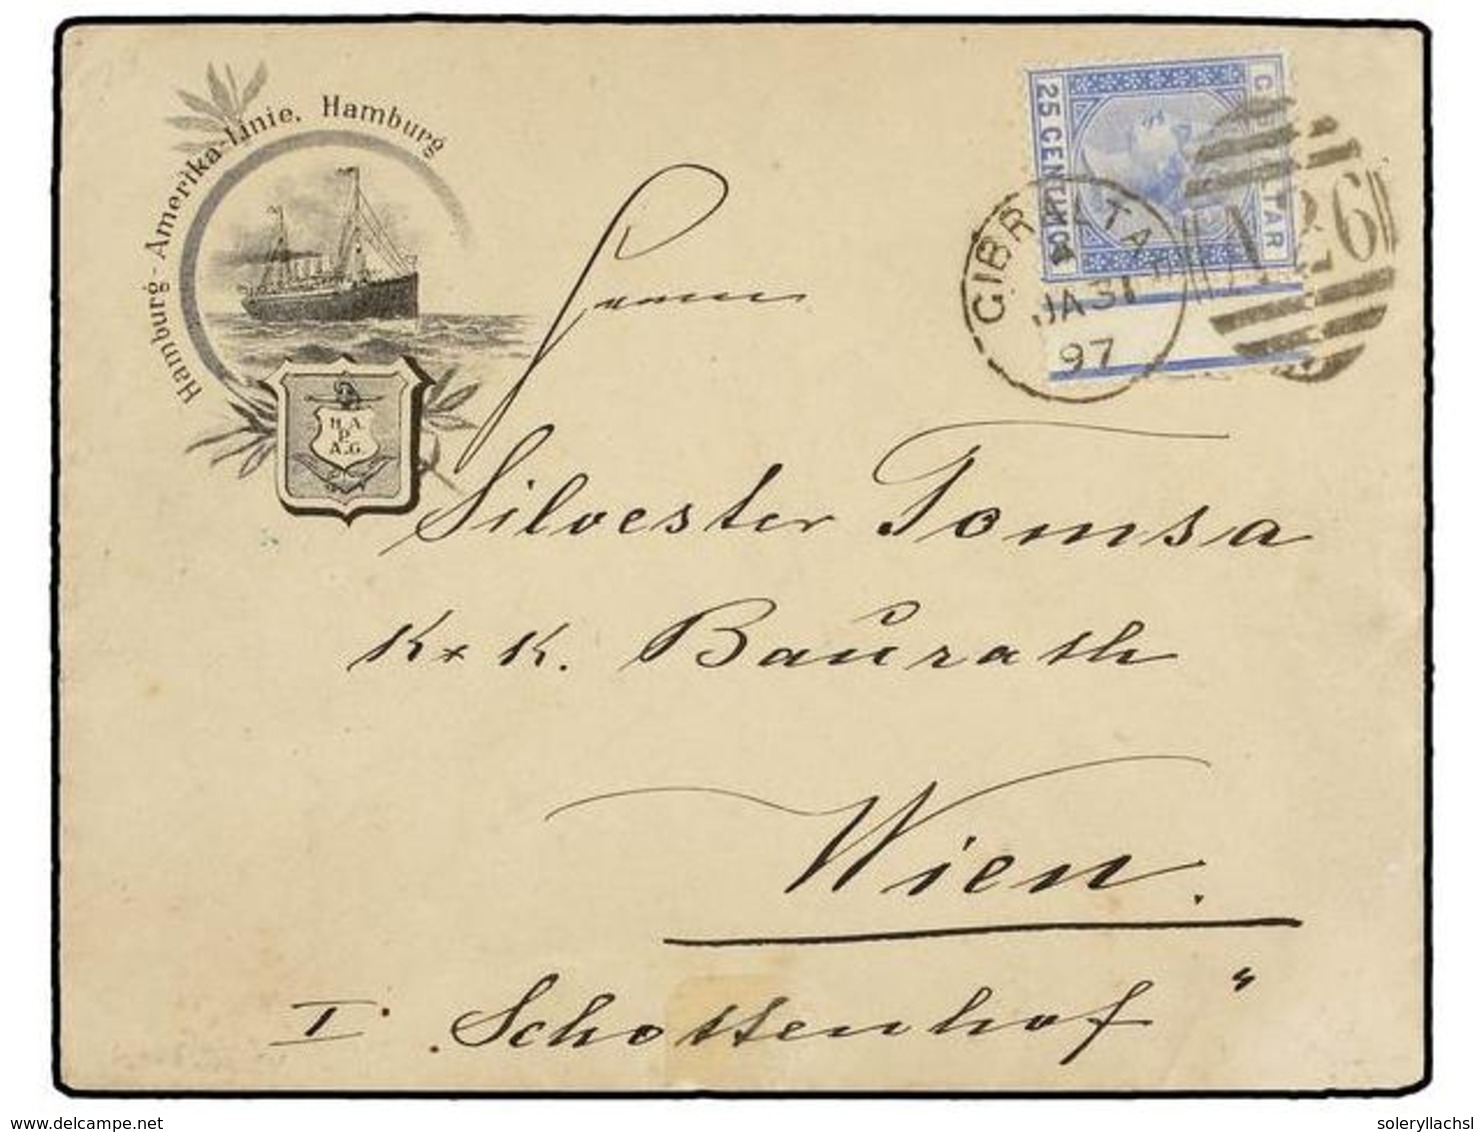 Hamburg-Amerika-Linie, Hamburg
H. A.
P.
A. G.
25 CENTIMOS
GIBRALTAR
GIBRALTAR
JA 31
97
A26
Herrn
Silvester Tomsa
K. K. Baurath
Wien.
I. "Schottenhof"
www.delcampe.net
soleryllachsl